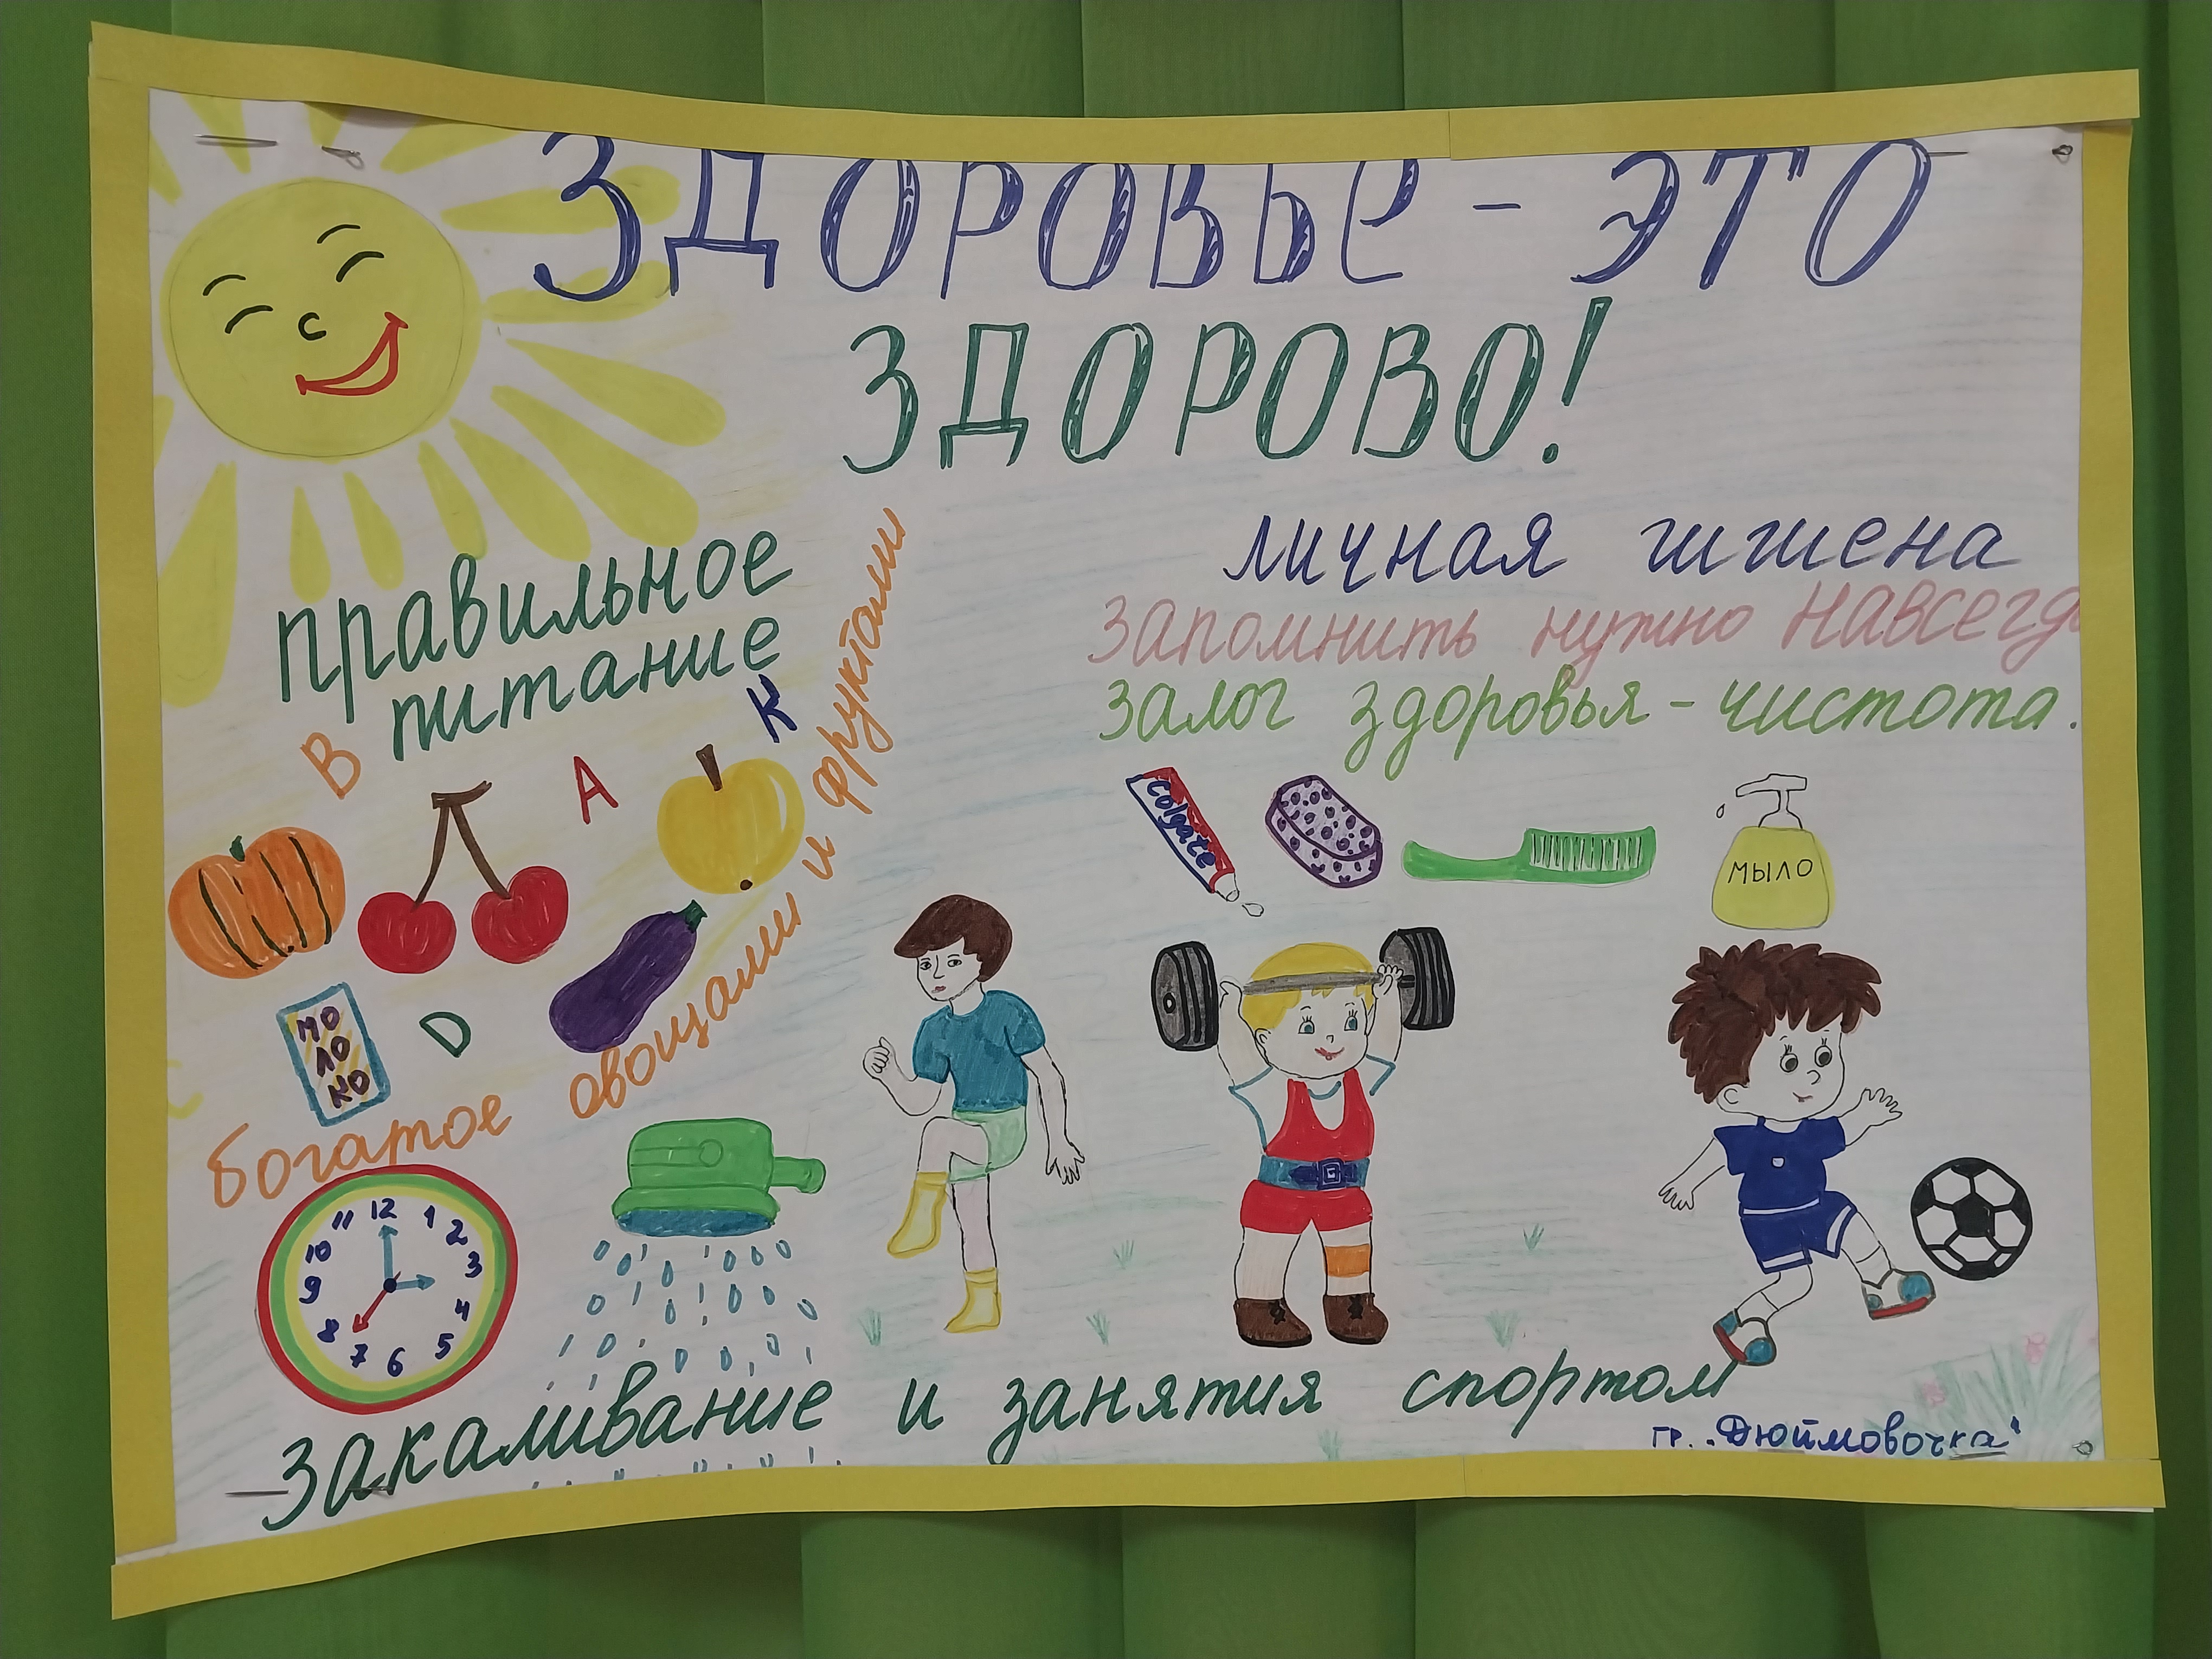 ЗДОРОВЬЕ - ЭТО
ЗДОРОВО!
правильное
питание
В А К
D
МО
ЛО
КО
богатое овощами и фруктами
личная гигиена
запомнить нужно навсегда
залог здоровья - чистота.
Colgate
МЫЛО
12
1
2
3
4
5
6
7
8
9
10
11
закаливание и занятия спортом
гр. „Дюймовочка"